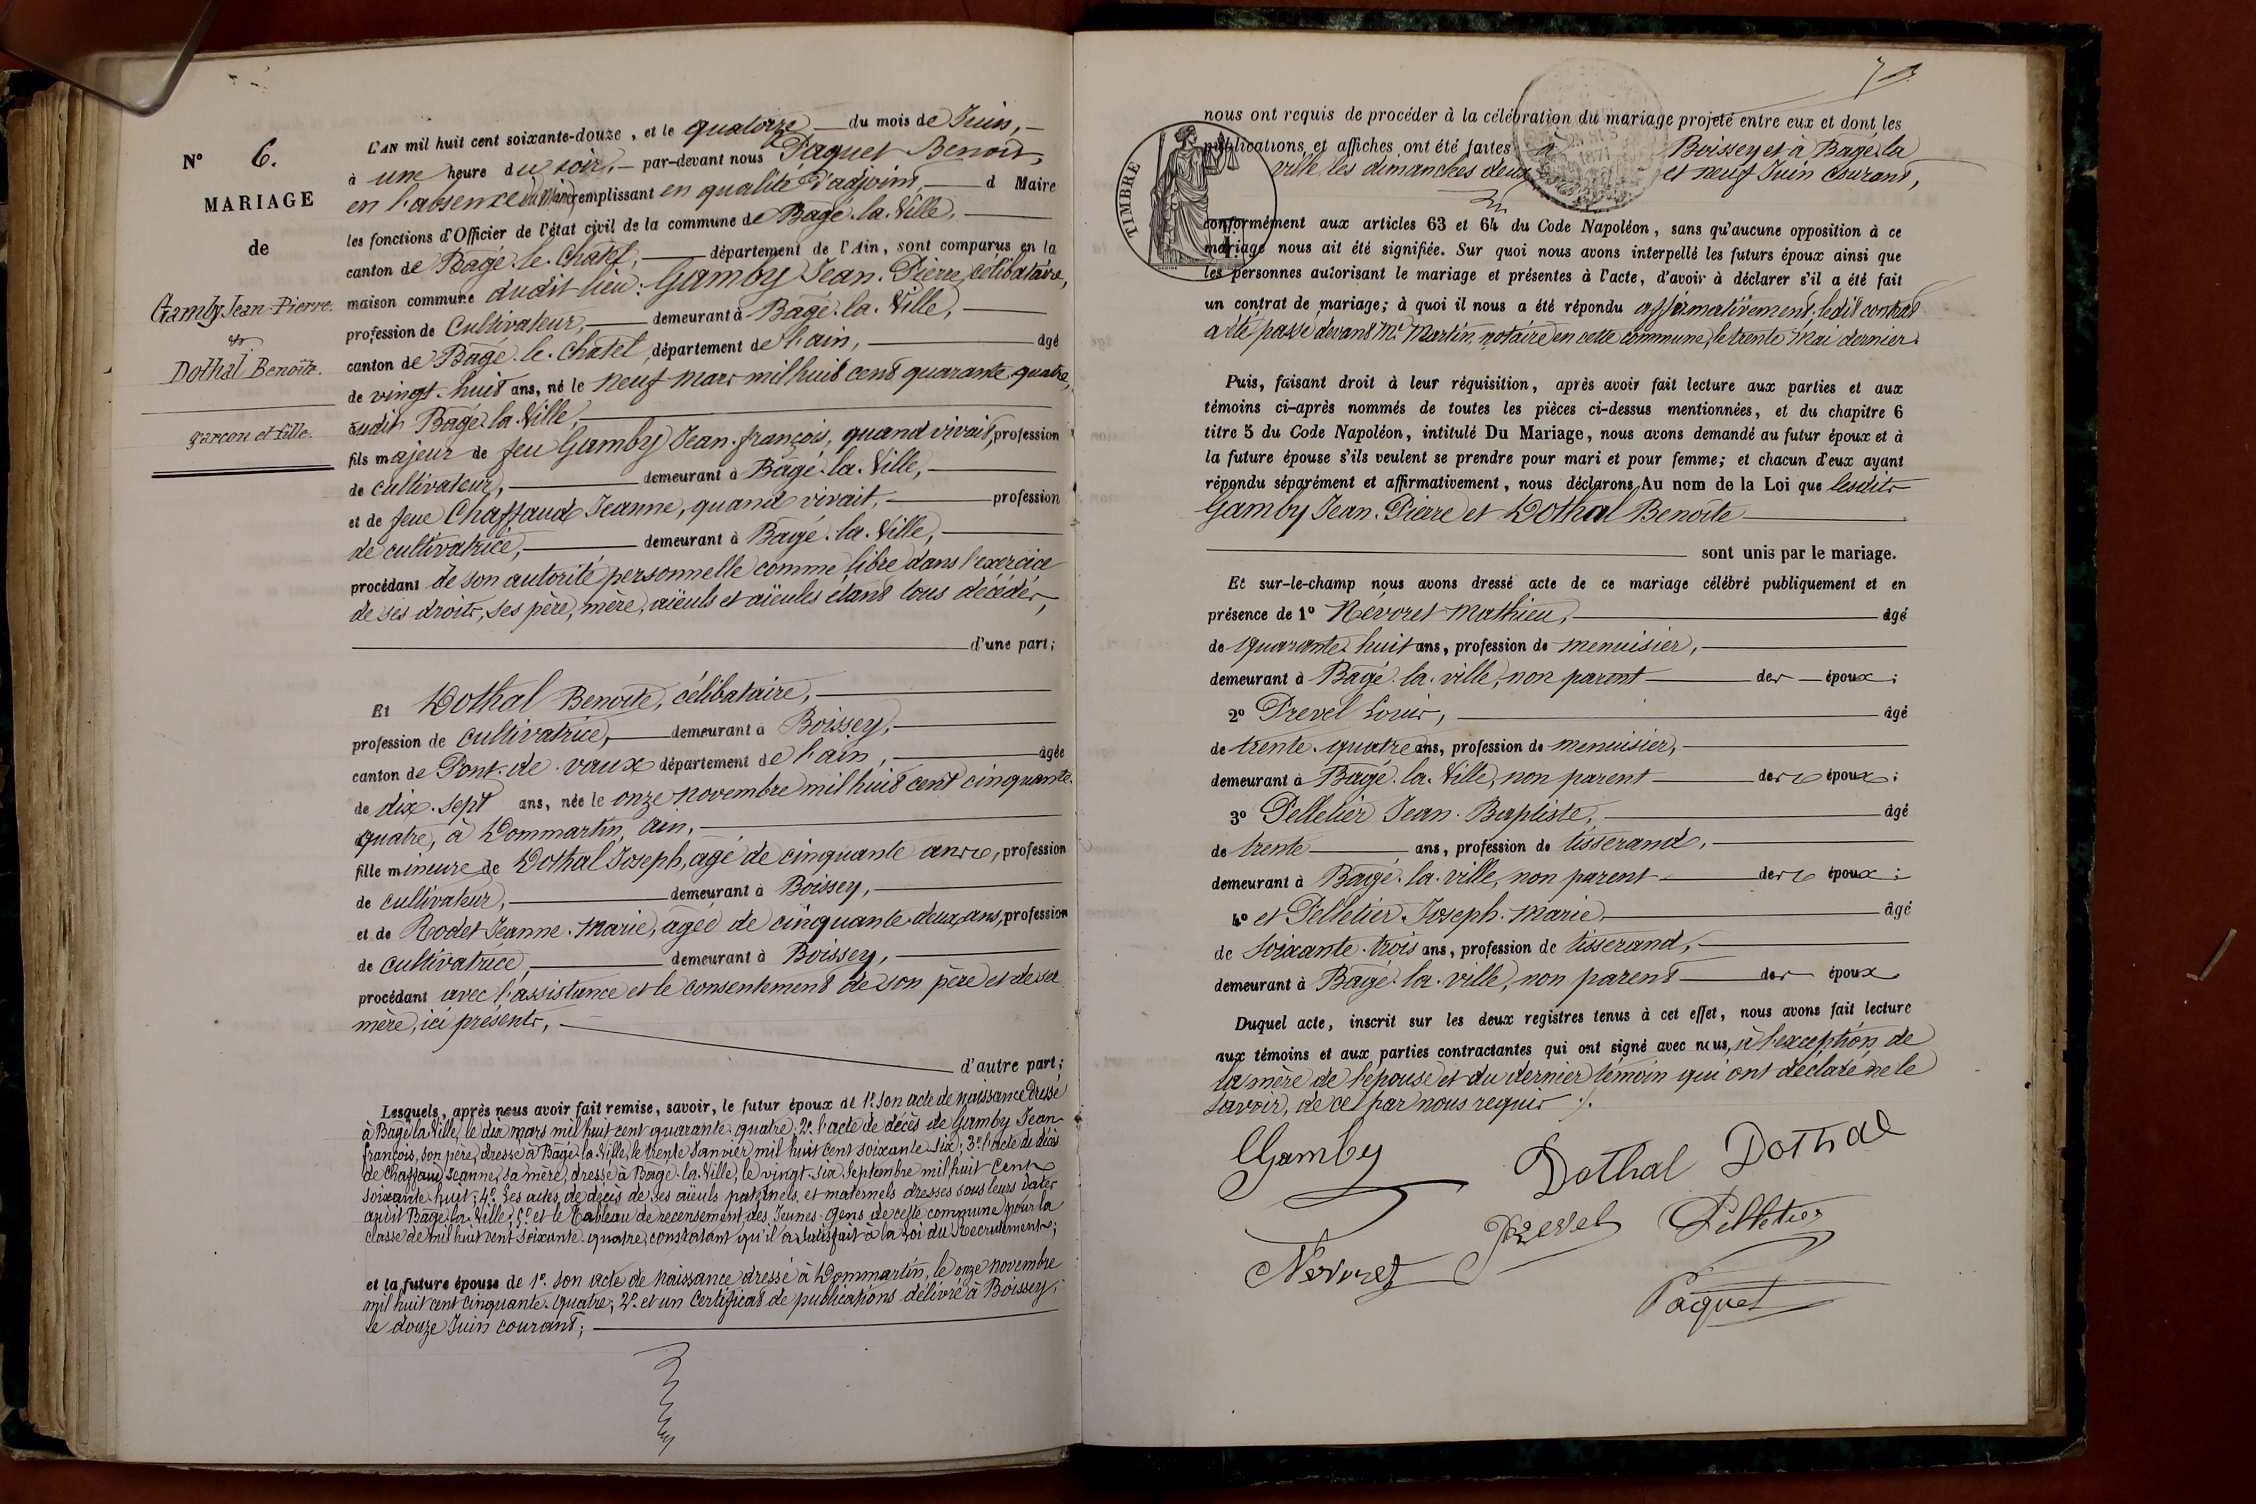 N° 6.
MARIAGE
de
Gamby Jean-Pierre.
et
Dothal Benoîte.
garçon et fille.
L'AN mil huit cent soixante-douze, et le quatorze du mois de Juin,
à une heure du soir, par-devant nous Paquet Benoit,
en l'absence du Maire remplissant en qualité d'adjoint, d Maire
les fonctions d'Officier de l'état civil de la commune de Bagé-la-Ville,
canton de Bagé-le-Chatel, département de l'Ain, sont comparus en la
maison commune dudit lieu: Gamby Jean-Pierre, célibataire,
profession de Cultivateur, demeurant à Bagé-la-Ville,
canton de Bagé-le-Chatel, département de l'ain, âgé
de vingt-huit ans, né le neuf mars mil huit cent quarante quatre,
audit Bagé-la-Ville,
fils majeur de feu Gamby Jean-françois, quand vivait, profession
de cultivateur, demeurant à Bagé-la-Ville,
et de feue Chaffaud Jeanne, quand vivait, profession
de cultivatrice, demeurant à Bagé-la-Ville,
procédant de son autorité personnelle comme libre dans l'exercice
de ses droits, ses père, mère, aïeuls et aïeules étant tous décédés,
d'une part;
Et Dothal Benoite, célibataire,
profession de cultivatrice, demeurant à Boissey,
canton de Pont-de-vaux département de l'ain, âgée
de dix-sept ans, née le onze novembre mil huit cent cinquante-
quatre, à Dommartin, Ain,
fille mineure de Dothal Joseph, agé de cinquante ans, profession
de cultivateur, demeurant à Boissey,
et de Rodet Jeanne-Marie, agée de cinquante-deux ans, profession
de cultivatrice, demeurant à Boissey,
procédant avec l'assistance et le consentement de son père et de sa
mère, ici présents,
d'autre part;
Lesquels, après nous avoir fait remise, savoir, le futur époux de 1° son acte de naissance dressé
à Bagé-la-Ville, le dix mars mil huit cent quarante-quatre; 2° l'acte de décès de Gamby Jean-
françois, son père, dressé à Bagé-la-Ville, le trente Janvier mil huit cent soixante-six; 3° l'acte de décès
de Chaffaud Jeanne, sa mère, dressé à Bagé-la-Ville, le vingt-six Septembre mil huit cent
soixante-huit; 4° les actes de décès de ses aïeuls paternels et maternels dressés sous leurs dates
audit Bagé-la-Ville; 5° et le Tableau de recensement des Jeunes-Gens de cette commune pour la
classe de mil huit cent soixante-quatre, constatant qu'il a satisfait à la Loi du Recrutement;
et la future épouse de 1° son acte de naissance dressé à Dommartin, le onze novembre
mil huit cent cinquante-quatre; 2° et un Certificat de publications délivré à Boissey,
le douze Juin courant;
nous ont requis de procéder à la célébration du mariage projeté entre eux et dont les
publications et affiches ont été faites à Boissey et à Bagé-la
ville, les dimanches deux et neuf Juin courant,
TIMBRE
conformément aux articles 63 et 64 du Code Napoléon, sans qu'aucune opposition à ce
mariage nous ait été signifiée. Sur quoi nous avons interpellé les futurs époux ainsi que
les personnes autorisant le mariage et présentes à l'acte, d'avoir à déclarer s'il a été fait
un contrat de mariage; à quoi il nous a été répondu affirmativement, ledit contrat
a été passé devant Me Martin, notaire en cette commune, le trente Mai dernier.
Puis, faisant droit à leur réquisition, après avoir fait lecture aux parties et aux
témoins ci-après nommés de toutes les pièces ci-dessus mentionnées, et du chapitre 6
titre 5 du Code Napoléon, intitulé Du Mariage, nous avons demandé au futur époux et à
la future épouse s'ils veulent se prendre pour mari et pour femme; et chacun d'eux ayant
répondu séparément et affirmativement, nous déclarons Au nom de la Loi que lesdits
Gamby Jean-Pierre et Dothal Benoîte
sont unis par le mariage.
Et sur-le-champ nous avons dressé acte de ce mariage célébré publiquement et en
présence de 1° Névoret Mathieu, âgé
de quarante huit ans, profession de menuisier,
demeurant à Bagé-la-ville, non parent des époux;
2° Prevel Louis, âgé
de trente-quatre ans, profession de menuisier,
demeurant à Bagé-la-Ville, non parent des époux;
3° Pelletier Jean-Baptiste, âgé
de trente ans, profession de tisserand,
demeurant à Bagé-la-ville, non parent des époux;
4° et Pelletier Joseph-Marie âgé
de soixante-trois ans, profession de tisserand,
demeurant à Bagé-la-ville, non parent des époux
Duquel acte, inscrit sur les deux registres tenus à cet effet, nous avons fait lecture
aux témoins et aux parties contractantes qui ont signé avec nous, à l'exception de
la mère de l'épouse et du dernier témoin qui ont déclaré ne le
savoir, de ce par nous requis ./.
Gamby Dothal Dothal
Névoret Prevel Pelletier
Paquet